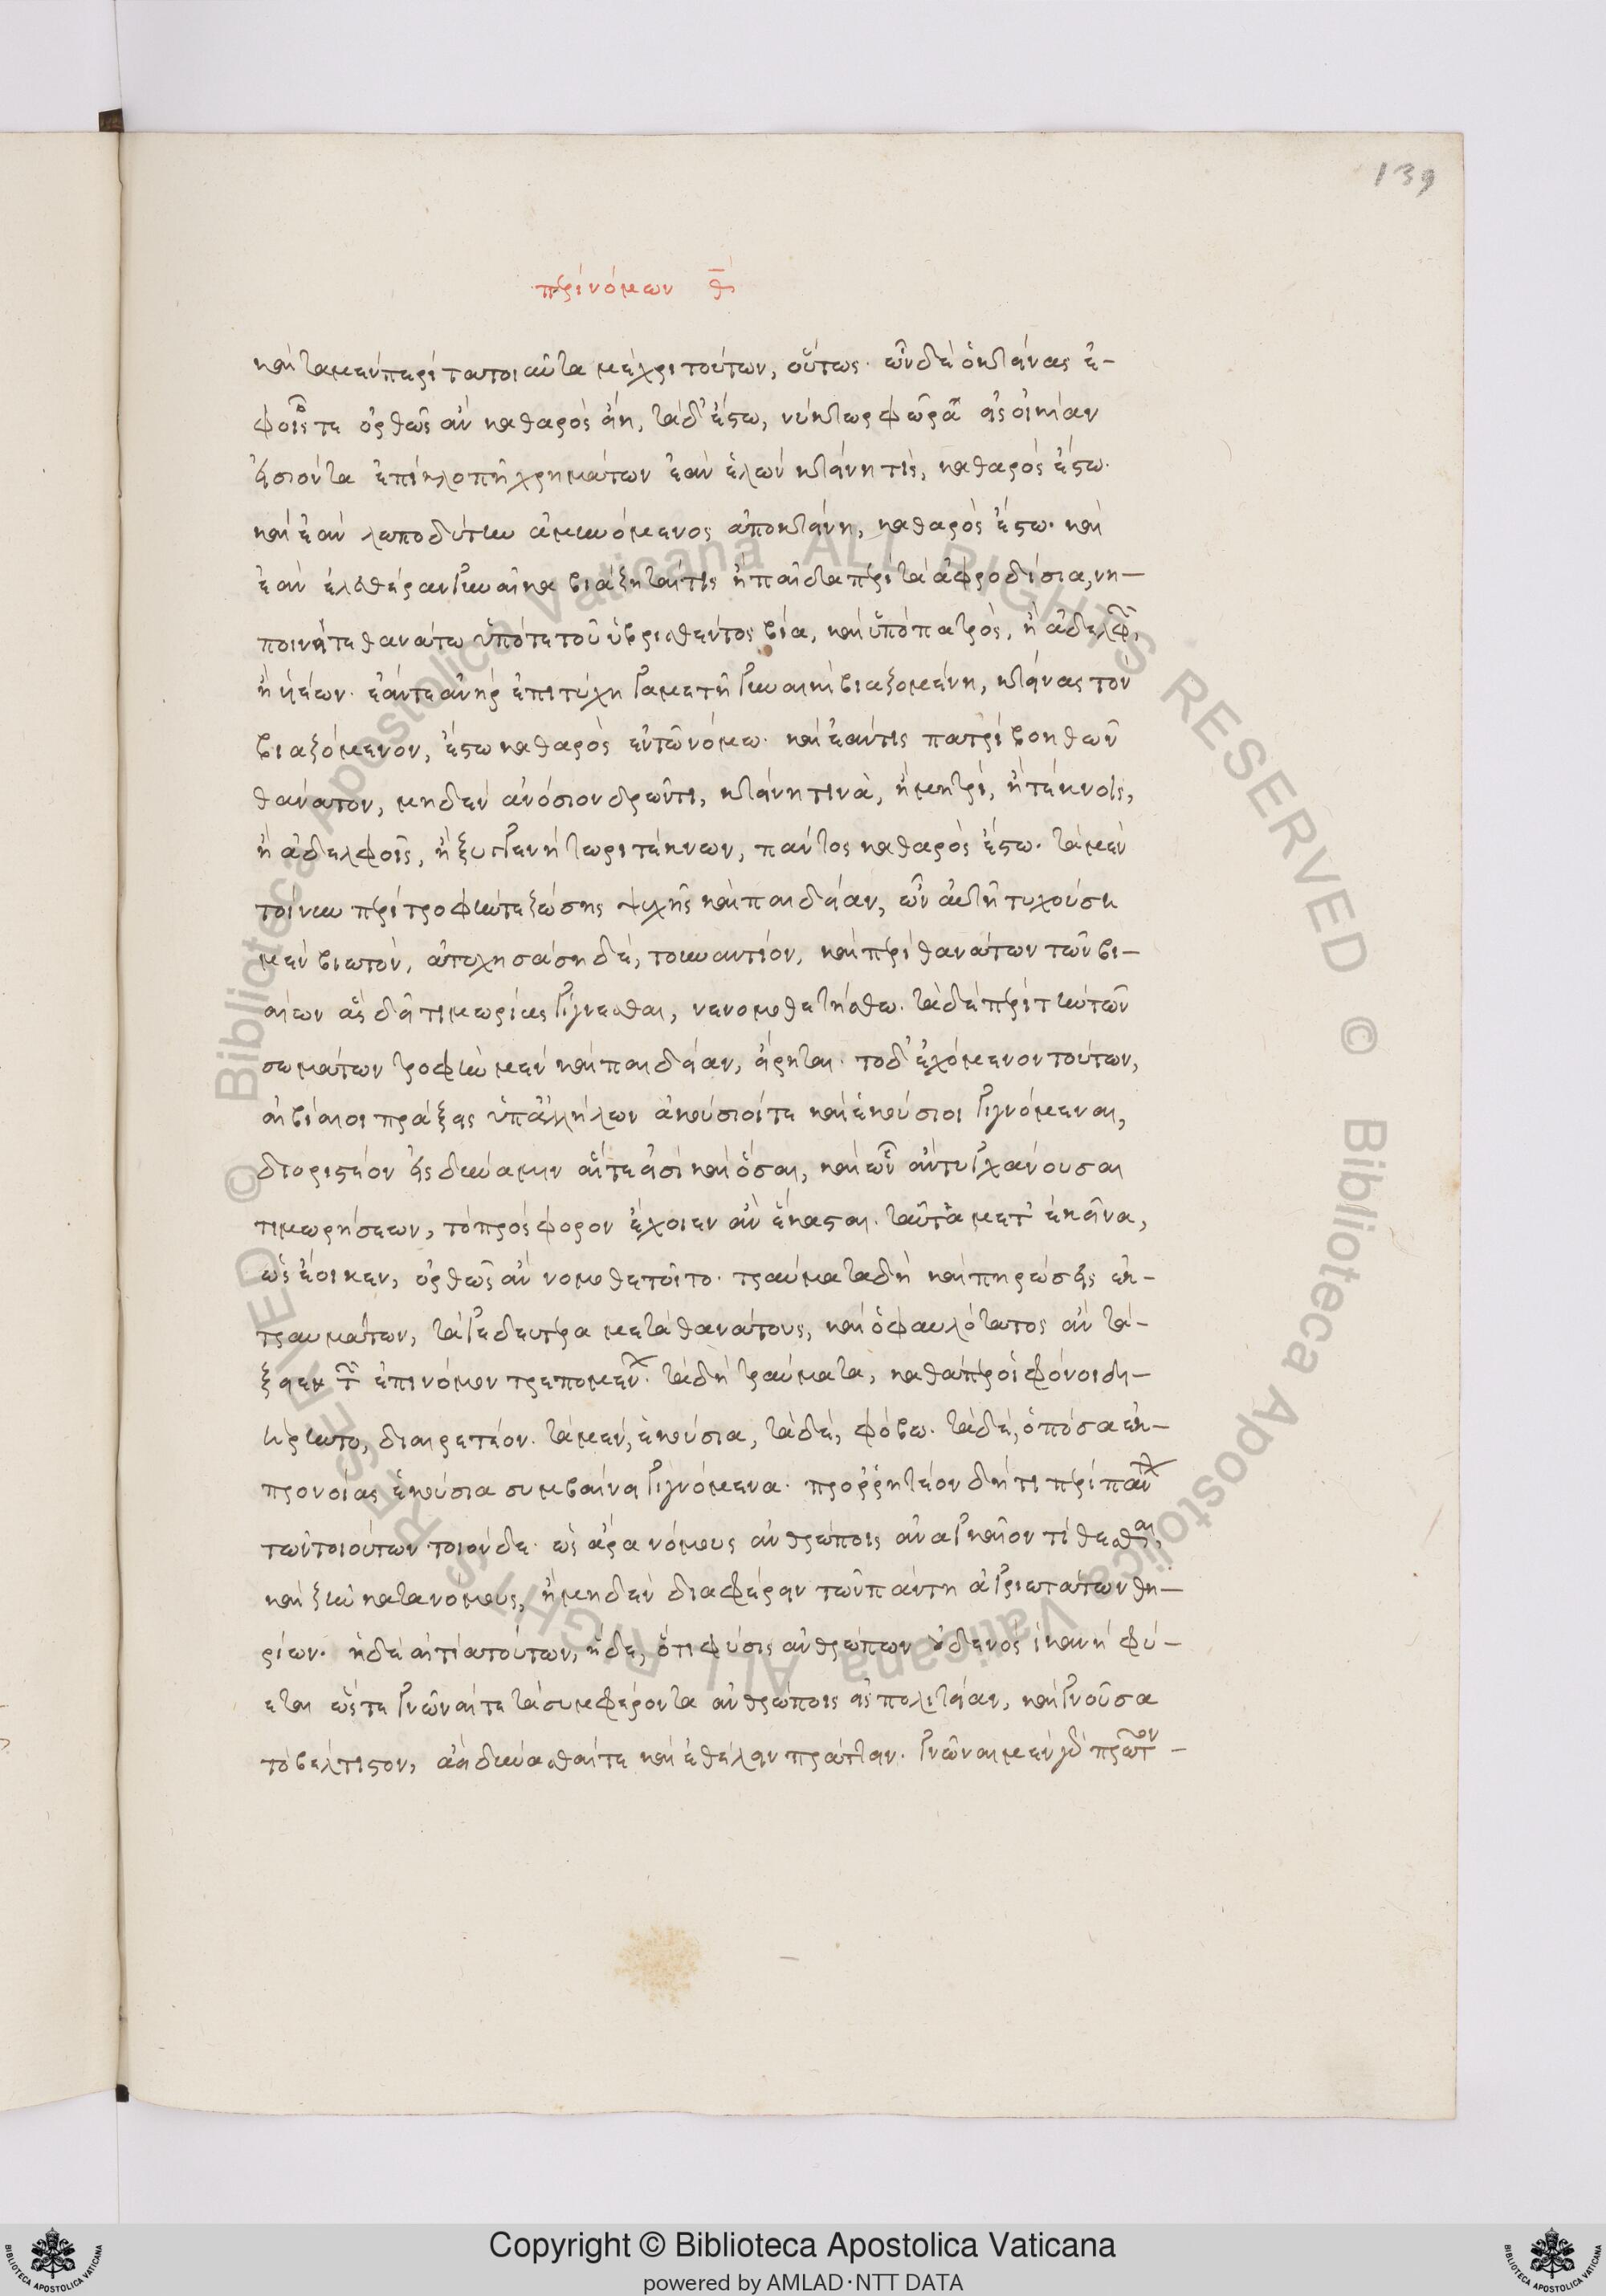 139
περὶ νόμων θ̅
καὶ τὰ μὲν περὶ τὰ τοιαῦτα μέχρι τούτων, οὕτως· ὧν δὲ ὁ κτείνας ἐ-
φ᾽ οἷς τε ὀρθῶς ἂν καθαρὸς εἴη, τάδ᾽ ἔστω, νύκτωρ φῶρα εἰς οἰκίαν
εἰσιόντα ἐπὶ κλοπῆ χρημάτων ἐὰν ἑλὼν κτείνη τὶς, καθαρὸς ἔστω·
καὶ ἐὰν λωποδύτην ἀμυνόμενος ἀποκτείνη, καθαρὸς ἔστω· καὶ
ἐὰν ἐλευθέραν γυναῖκα βιάζηταί τις ἢ παῖδα περὶ τὰ ἀφροδίσια, νη-
ποινὴ τεθνάτω ὑπό τε τοῦ ὑβρισθέντος βία, καὶ ὑπὸ πατρὸς, ἢ ἀδελφῶν,
ἢ υἱέων· ἐάν τε ἀνὴρ ἐπιτύχη γαμετῆ γυναικὶ βιαζομένη, κτείνας τὸν
βιαζόμενον, ἔστω καθαρὸς ἐν τῶ νόμω· καὶ ἐάν τις πατρὶ βοηθῶν
θάνατον, μηδὲν ἀνόσιον δρῶντι, κτείνη τινὰ, ἢ μητρὶ, ἢ τέκνοις,
ἢ ἀδελφοῖς, ἢ ξυγγεννήτωρι τέκνων, πάντως καθαρὸς ἔστω· τὰ μὲν
τοίνυν περὶ τροφήν τε ζώσης ψυχῆς καὶ παιδείαν, ὧν αὐτῆ τυχούση
μὲν βιωτὸν, ἀτυχησάση δὲ, τοὐναντίον, καὶ περὶ θανάτων τῶν βι-
αίων ἃς δεῖ τιμωρίας γίγνεσθαι, νενομοθετήσθω· τὰ δὲ περὶ τὴν τῶν
σωμάτων τροφὴν μὲν καὶ παιδείαν, εἴρηται· τὸ δ᾽ ἐχόμενον τούτων,
αἱ βίαιοι πράξεις ὑπ᾽ ἀλλήλων ἀκούσιοί τε καὶ ἑκούσιοι γιγνόμεναι,
διοριστέον εἰς δύναμιν αἵ τε εἰσὶ καὶ ὅσαι, καὶ ὧν ἂν τυγχάνουσαι
τιμωρήσεων, τὸ πρόσφορον ἔχοιεν ἂν ἕκασται· ταῦτα μετ᾽ ἐκεῖνα,
ὡς ἔοικεν, ὀρθῶς ἂν νομοθετοῖτο· τραύματα δὴ καὶ πηρώσεις ἐκ-
τραυμάτων, τά γε δεύτερα μετὰ θανάτους, καὶ ὁ φαυλότατος ἂν τά-
ξειεν τῶν ἐπὶ νόμον τρεπομένων· τὰ δὴ τραύματα, καθάπερ οἱ φόνοι δι-
ῄρηντο, διαιρετέον· τὰ μὲν, ἑκούσια, τὰ δὲ, φόβω· τὰ δὲ, ὁπόσα ἐκ-
προνοίας ἑκούσια συμβαίνει γιγνόμενα· προῤῥητέον δή τι περὶ πάντων
τῶν τοιούτων τοιόνδε· ὡς ἄρα νόμους ἀνθρώποις ἀναγκαῖον τίθεσθαι,
καὶ ζῆν κατὰ νόμους, ἢ μηδὲν διαφέρειν τῶν πάντη ἀγριωτάτων θη-
ρίων· ἡ δὲ αἰτία τούτων, ἥδε, ὅτι φύσις ἀνθρώπων οὐδενὸς ἱκανὴ φύ-
εται ὥστε γνῶναί τε τὰ συμφέροντα ἀνθρώποις εἰς πολιτείαν, καὶ γνοῦσα
τὸ βέλτιστον, ἀεὶ δύνασθαί τε καὶ ἐθέλειν πράττειν· γνῶναι μὲν γὰρ πρῶτον-
Copyright © Biblioteca Apostolica Vaticana
powered by AMLAD·NTT DATA